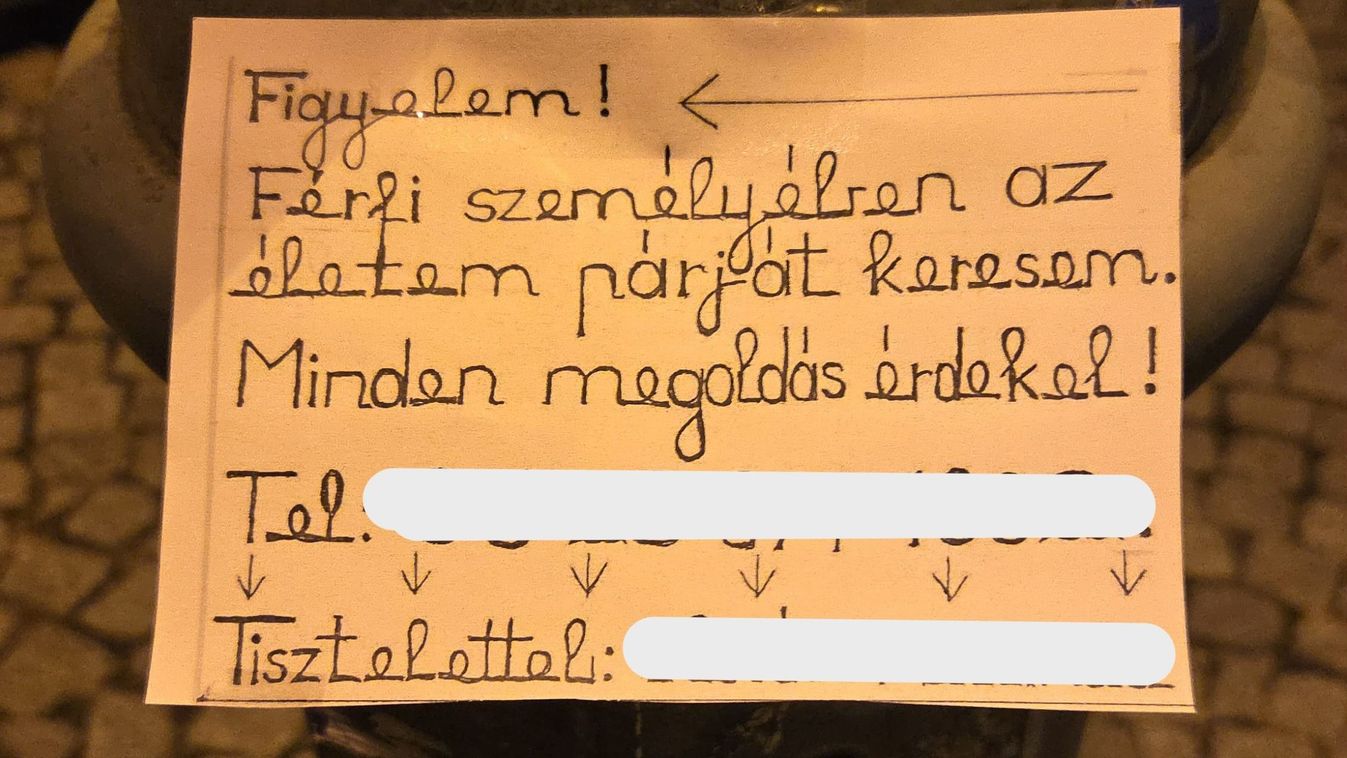 Figyelem!
Férfi személyében az
életem párját keresem.
Minden megoldás érdekel!
Tel.:
Tisztelettel: